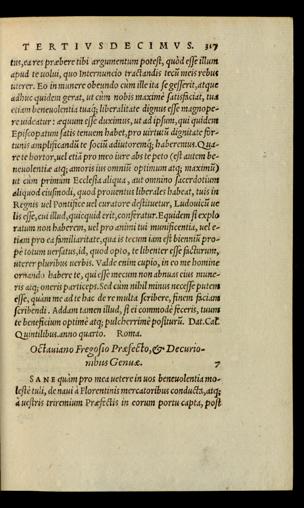 TERTIVSDECIMVS. 317
tus, ea res præbere tibi argumentum potest, quòd esse illum
apud te uolui, quo Internuncio tractandis tecũ meis rebus
uterer. Eo in munere obeundo cùm ille ita se gesserit, atque
adhuc quidem gerat, ut cùm nobis maxime satisfaciat, tua
etiam beneuolentia tuaq; liberalitate dignus esse magnope-
re uideatur: æquum esse duximus, ut ad ipsum, qui quidem
Episcopatum satis tenuem habet, pro uirtutũ dignitate for-
tunis amplificandũ te sociũ adiutoremq; haberemus. Qua-
re te hortor, uel etiã pro meo iure abs te peto (est autem be-
neuolentiæ atq; amoris ius omniũ optimum atq; maximũ)
ut cùm primum Ecclesia aliqua, aut omnino sacerdotium
aliquod eiusmodi, quod prouentus liberales habeat, tuis in
Regnis uel Pontifice uel curatore destituetur, Ludouicũ ue
lis esse, cui illud, quicquid erit, conferatur. Equidem si explo
ratum non haberem, uel pro animi tui munificentia, uel e-
tiam pro ea familiaritate, qua is tecum iam est bienniũ pro-
pè totum uersatus, id, quod opto, te libenter esse facturum,
uterer pluribus uerbis. Valde enim cupio, in eo me homine
ornando habere te, qui esse mecum non abnuas eius mune-
ris atq; oneris particeps. Sed cùm nihil minus necesse putem
esse, quàm me ad te hac de re multa scribere, finem faciam
scribendi. Addam tamen illud, si ei commodè feceris, tuum
te beneficium optimè atq; pulcherrimè positurũ. Dat. Cal.
Quintilibus. anno quarto. Roma.
Octauiano Fregosio Præfecto, & Decurio-
nibus Genuæ. 7
SANE quàm pro mea uetere in uos beneuolentia mo-
lestè tuli, de naui à Florentinis mercatoribus conducta, atq;
à uestris triremium Præfectis in eorum portu capta, post